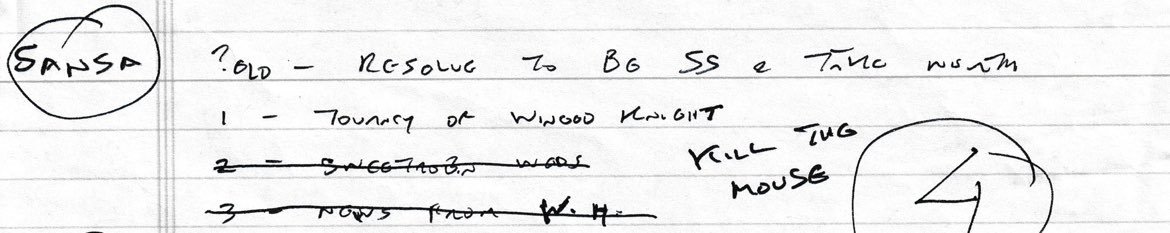 SANSA
?OLD - RESOLVE TO BE SS & TAKE NORTH
1 - TOURNEY OF WINGED KNIGHT
2 - SWEETROBIN WEDS
KILL THE
MOUSE
3 - NEWS FROM W.H.
4